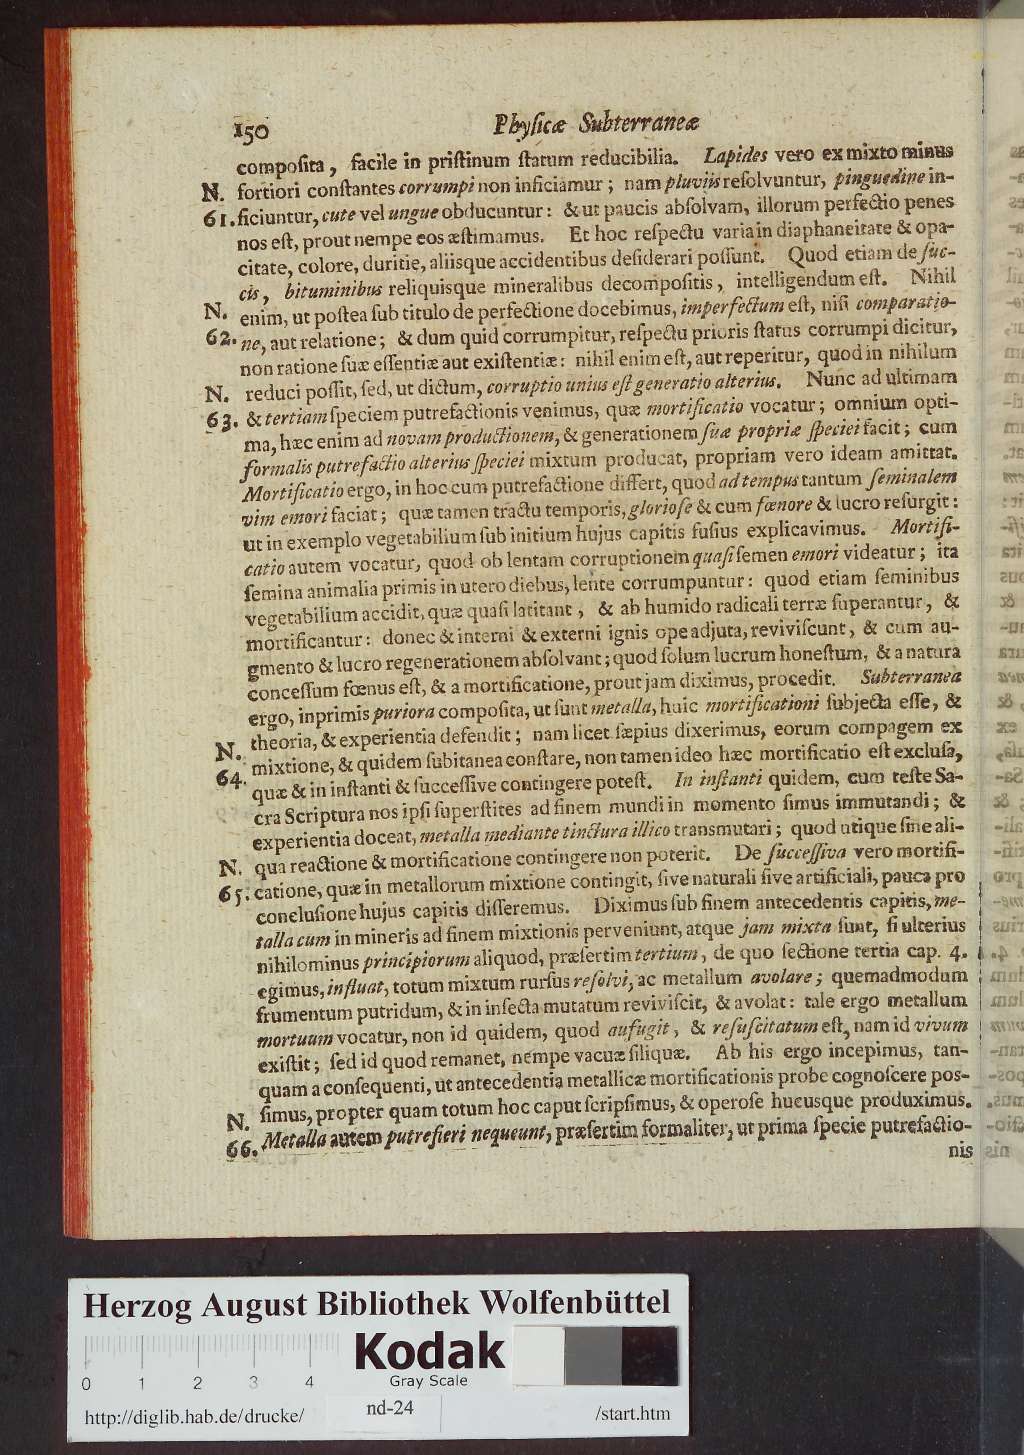 150 Phyſicæ Subterraneæ
compoſita, facile in priſtinum ſtatum reducibilia. Lapides vero ex mixto minus
N. fortiori conſtantes corrumpi non inficiamur; nam pluviis reſolvuntur, pinguedine in-
61. ficiuntur, cute vel ungue obducuntur: & ut paucis abſolvam, illorum perfectio penes
nos eſt, prout nempe eos æſtimamus. Et hoc reſpectu varia in diaphaneitate & opa-
citate, colore, duritie, aliisque accidentibus deſiderari poſſunt. Quod etiam de ſuc-
cis, bituminibus reliquisque mineralibus decompoſitis, intelligendum eſt. Nihil
N. enim, ut poſtea ſub titulo de perfectione docebimus, imperfectum eſt, niſi comparatio-
62. ne, aut relatione; & dum quid corrumpitur, reſpectu prioris ſtatus corrumpi dicitur,
non ratione ſuæ eſſentiæ aut exiſtentiæ: nihil enim eſt, aut reperitur, quod in nihilum
N. reduci poſſit, ſed, ut dictum, corruptio unius eſt generatio alterius. Nunc ad ultimam
63. & tertiam ſpeciem putrefactionis venimus, quæ mortificatio vocatur; omnium opti-
ma, hæc enim ad novam productionem, & generationem ſuæ propriæ ſpeciei facit; cum
formalis putrefactio alterius ſpeciei mixtum producat, propriam vero ideam amittat.
Mortificatio ergo, in hoc cum putrefactione differt, quod ad tempus tantum ſeminalem
vim emori faciat; quæ tamen tractu temporis, glorioſe & cum fœnore & lucro reſurgit:
ut in exemplo vegetabilium ſub initium hujus capitis fuſius explicavimus. Mortifi-
catio autem vocatur, quod ob lentam corruptionem quaſi ſemen emori videatur; ita
ſemina animalia primis in utero diebus, lente corrumpuntur: quod etiam ſeminibus
vegetabilium accidit, quæ quaſi latitant, & ab humido radicali terræ ſuperantur, &
mortificantur: donec & interni & externi ignis ope adjuta, reviviſcunt, & cum au-
gmento & lucro regenerationem abſolvant; quod ſolum lucrum honeſtum, & a natura
conceſſum fœnus eſt, & a mortificatione, prout jam diximus, procedit. Subterranea
ergo, inprimis puriora compoſita, ut ſunt metalla, huic mortificationi ſubjecta eſſe, &
N. theoria, & experientia defendit; nam licet ſæpius dixerimus, eorum compagem ex
64. mixtione, & quidem ſubitanea conſtare, non tamen ideo hæc mortificatio eſt excluſa,
quæ & in inſtanti & ſucceſſive contingere poteſt. In inſtanti quidem, cum teſte Sa-
cra Scriptura nos ipſi ſuperſtites ad finem mundi in momento ſimus immutandi; &
experientia doceat, metalla mediante tinctura illico transmutari; quod utique ſine ali-
N. qua reactione & mortificatione contingere non poterit. De ſucceſſiva vero mortifi-
65. catione, quæ in metallorum mixtione contingit, ſive naturali ſive artificiali, pauca pro
concluſione hujus capitis differemus. Diximus ſub finem antecedentis capitis, me-
talla cum in mineris ad finem mixtionis perveniunt, atque jam mixta ſunt, ſi ulterius
nihilominus principiorum aliquod, præſertim tertium, de quo ſectione tertia cap. 4.
egimus, influat, totum mixtum rurſus reſolvi, ac metallum avolare; quemadmodum
frumentum putridum, & in inſecta mutatum reviviſcit, & avolat: tale ergo metallum
mortuum vocatur, non id quidem, quod aufugit, & reſuſcitatum eſt, nam id vivum
exiſtit; ſed id quod remanet, nempe vacuæ ſiliquæ. Ab his ergo incepimus, tan-
quam a conſequenti, ut antecedentia metallicæ mortificationis probe cognoſcere poſ-
N. ſimus, propter quam totum hoc caput ſcripſimus, & operoſe hucusque produximus.
66. Metalla autem putrefieri nequeunt, præſertim formaliter, ut prima ſpecie putrefactio-
nis
Herzog August Bibliothek Wolfenbüttel
Kodak
Gray Scale
0 1 2 3 4
http://diglib.hab.de/drucke/ nd-24 /start.htm